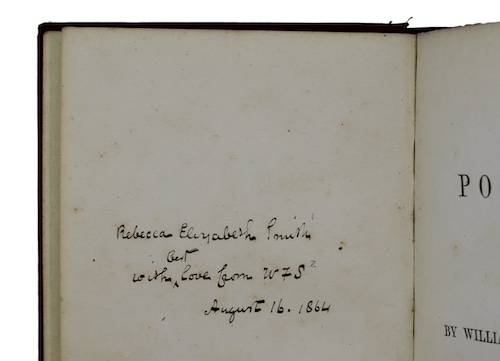 Rebecca Elizabeth Smith
best
with ‸ love from WFS
August 16. 1864
PO
BY WILLI